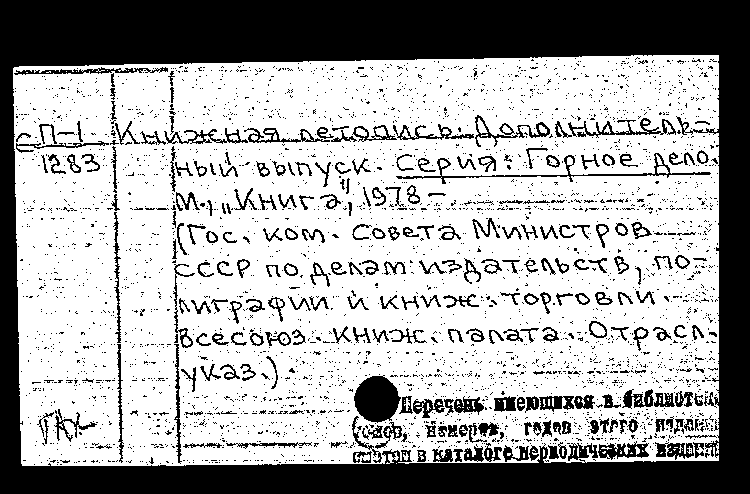 СП-1 Книжная летопись. Дополнитель-
1283 ный выпуск. Серия: Горное дело.
М., „Книга", 1978 –
(Гос. ком. Совета Министров
СССР по делам издательств, по-
лиграфии и книж. торговли.
Всесоюз. книж. палата. Отрасл.
указ.).
Перечень имеющихся в библиотеке
томов, номеров, годов этого издания
смотри в каталоге периодических изданий